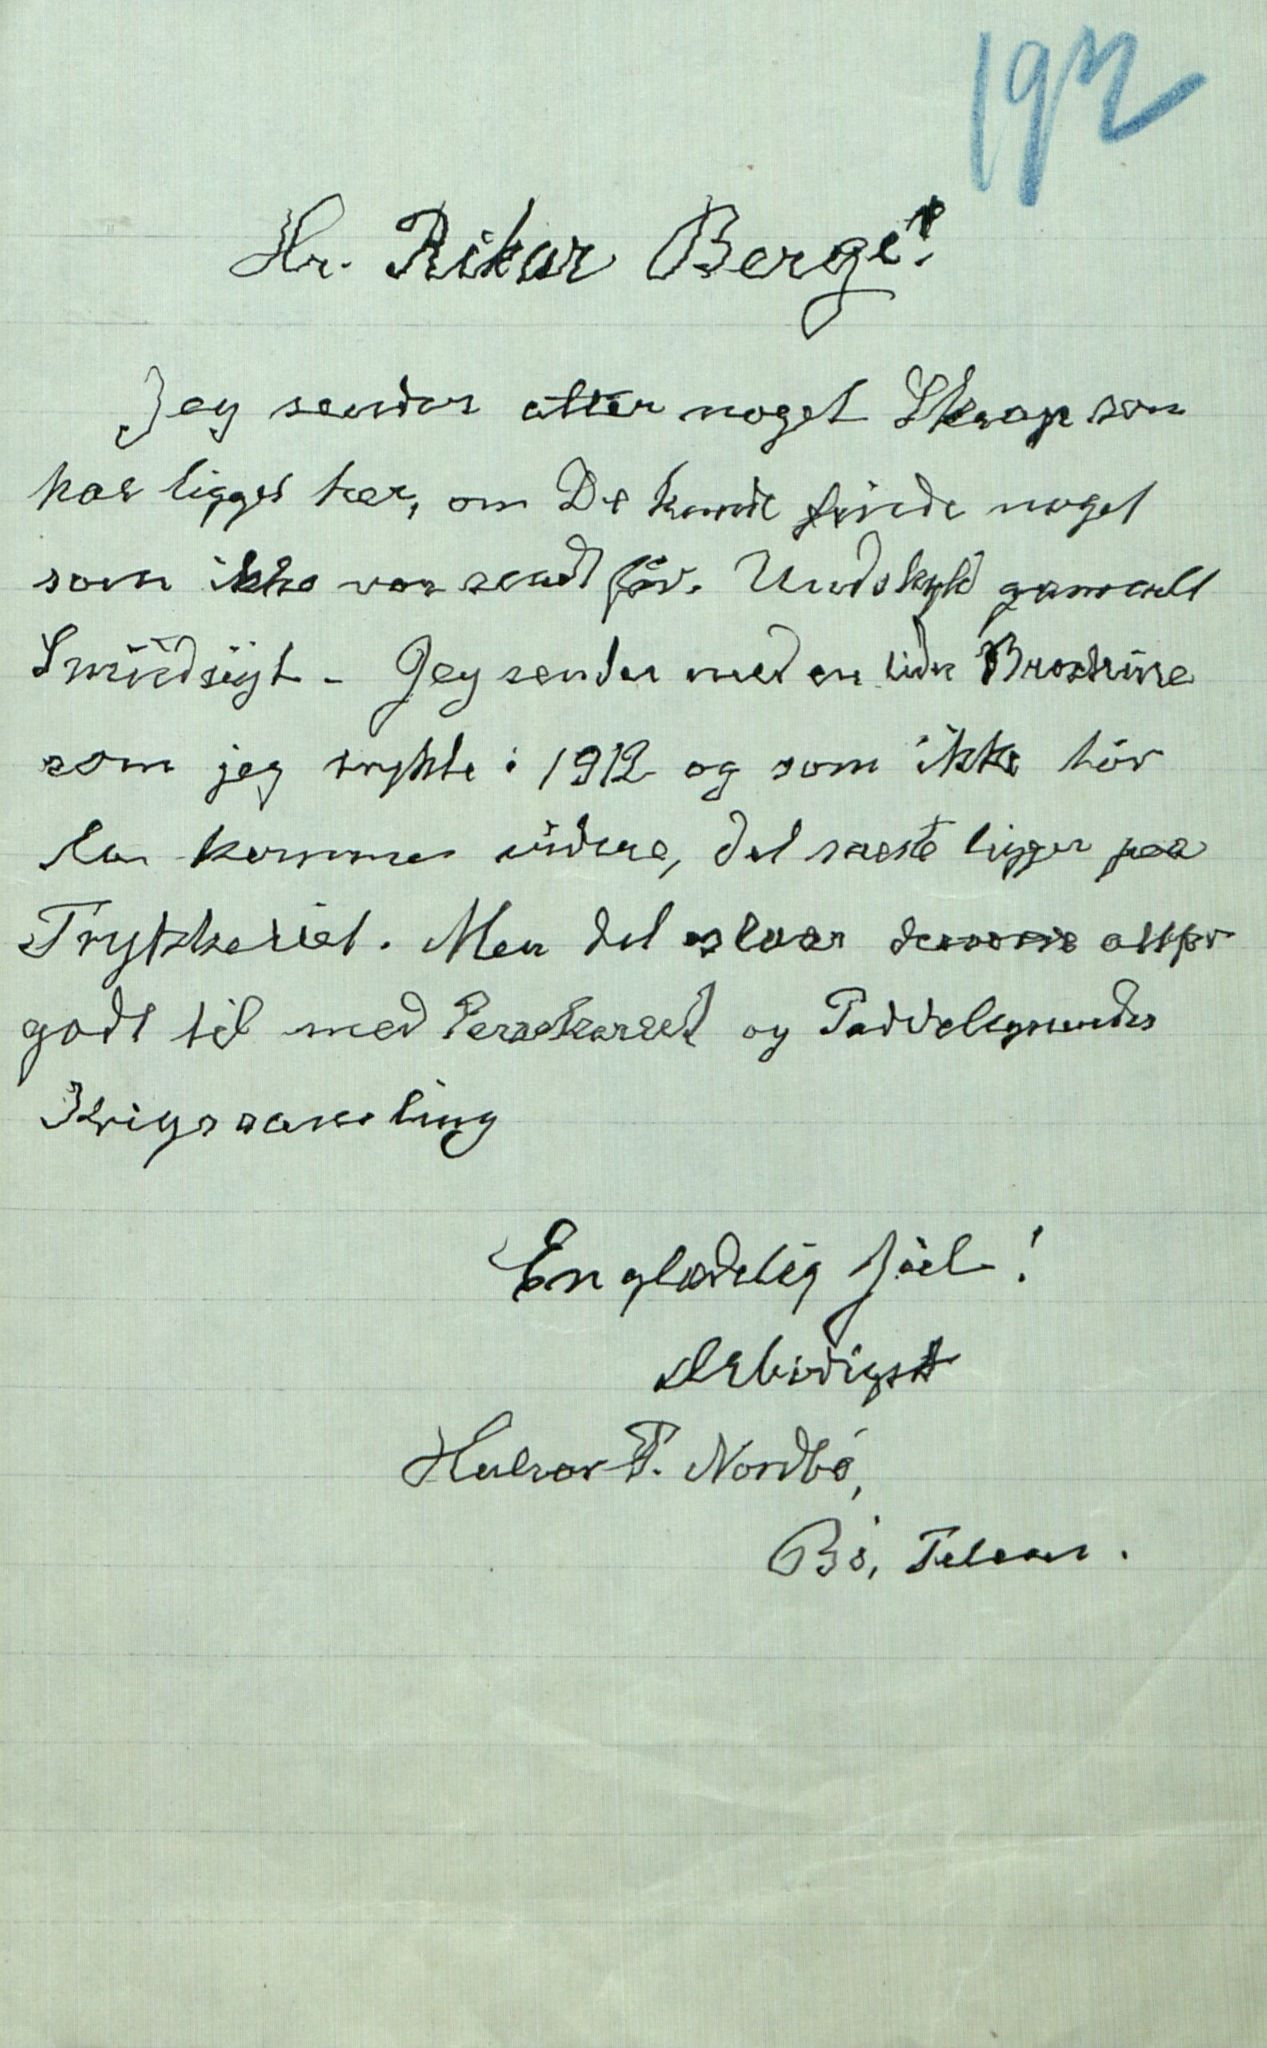 192
Hr. Rikar Berge!
Jeg sender atter noget Skrap som
har ligget her, om De kunde finde noget
som ikke var sendt før. Undskyld gammelt
Smudsigt - Jeg sender med en liden Brochure
som jeg trykte i 1912 og som ikke tør
la komme videre, det meste ligger paa
Trykkeriet. Men det slaar altfor
godt til med og
Krigssamling
En glædelig Jul!
Ærbødigst
Halvor T. Nordbø,
Bø, Telem.